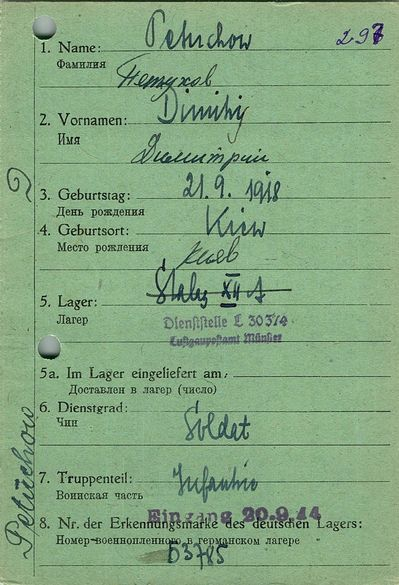 1. Name: Petuchow 297
Фамилия
Петухов
2. Vornamen: Dimitrij
Имя
Димитрий
3. Geburtstag: 21. 9. 1918
День рождения
4. Geburtsort: Kiew
Место рождения
Киев
5. Lager: Stalag XII A
Лагер
Dienststelle L 30374
Luftgaupostamt Münster
5a. Im Lager eingeliefert am:
Доставлен в лагер (число)
6. Dienstgrad:
Чин
Soldat
7. Truppenteil: Infanterie
Воинская часть
Eingang 20.9.44
8. Nr. der Erkennungsmarke des deutschen Lagers:
Номер военнопленного в германском лагере
53785
Petuchow